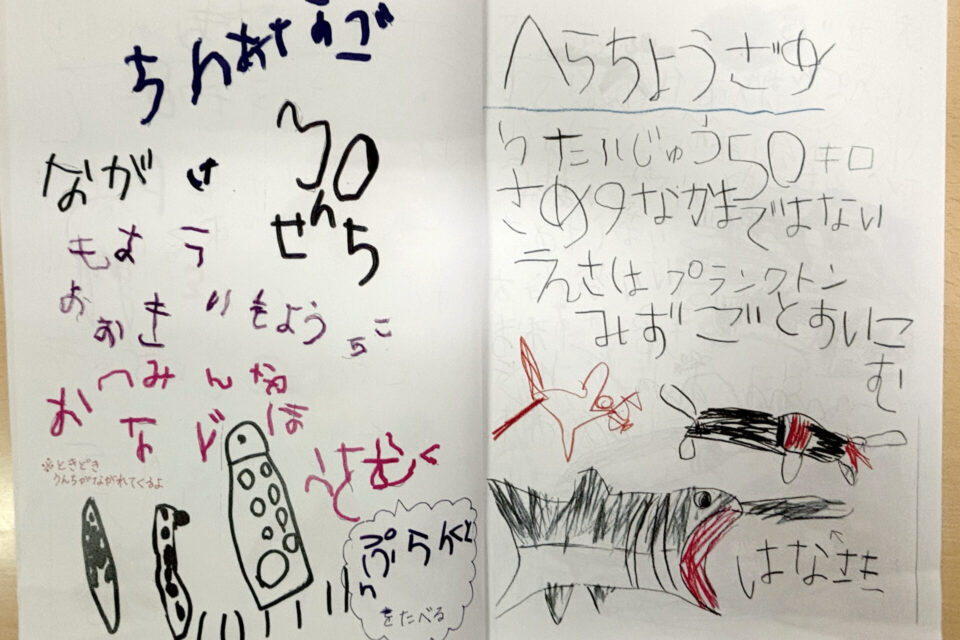 ちんあなご
ながさ 30
せんち
もよう
おおきいもよう 5こ
へみんな
おなじほ
うをむく
※ときどき
うんちがながれてくるよ
ぷらんくと
ん
をたべる
へらちょうざめ
たいじゅう50キロ
さめのなかまではない
えさはプランクトン
みずごとすいこ
む
はなさき